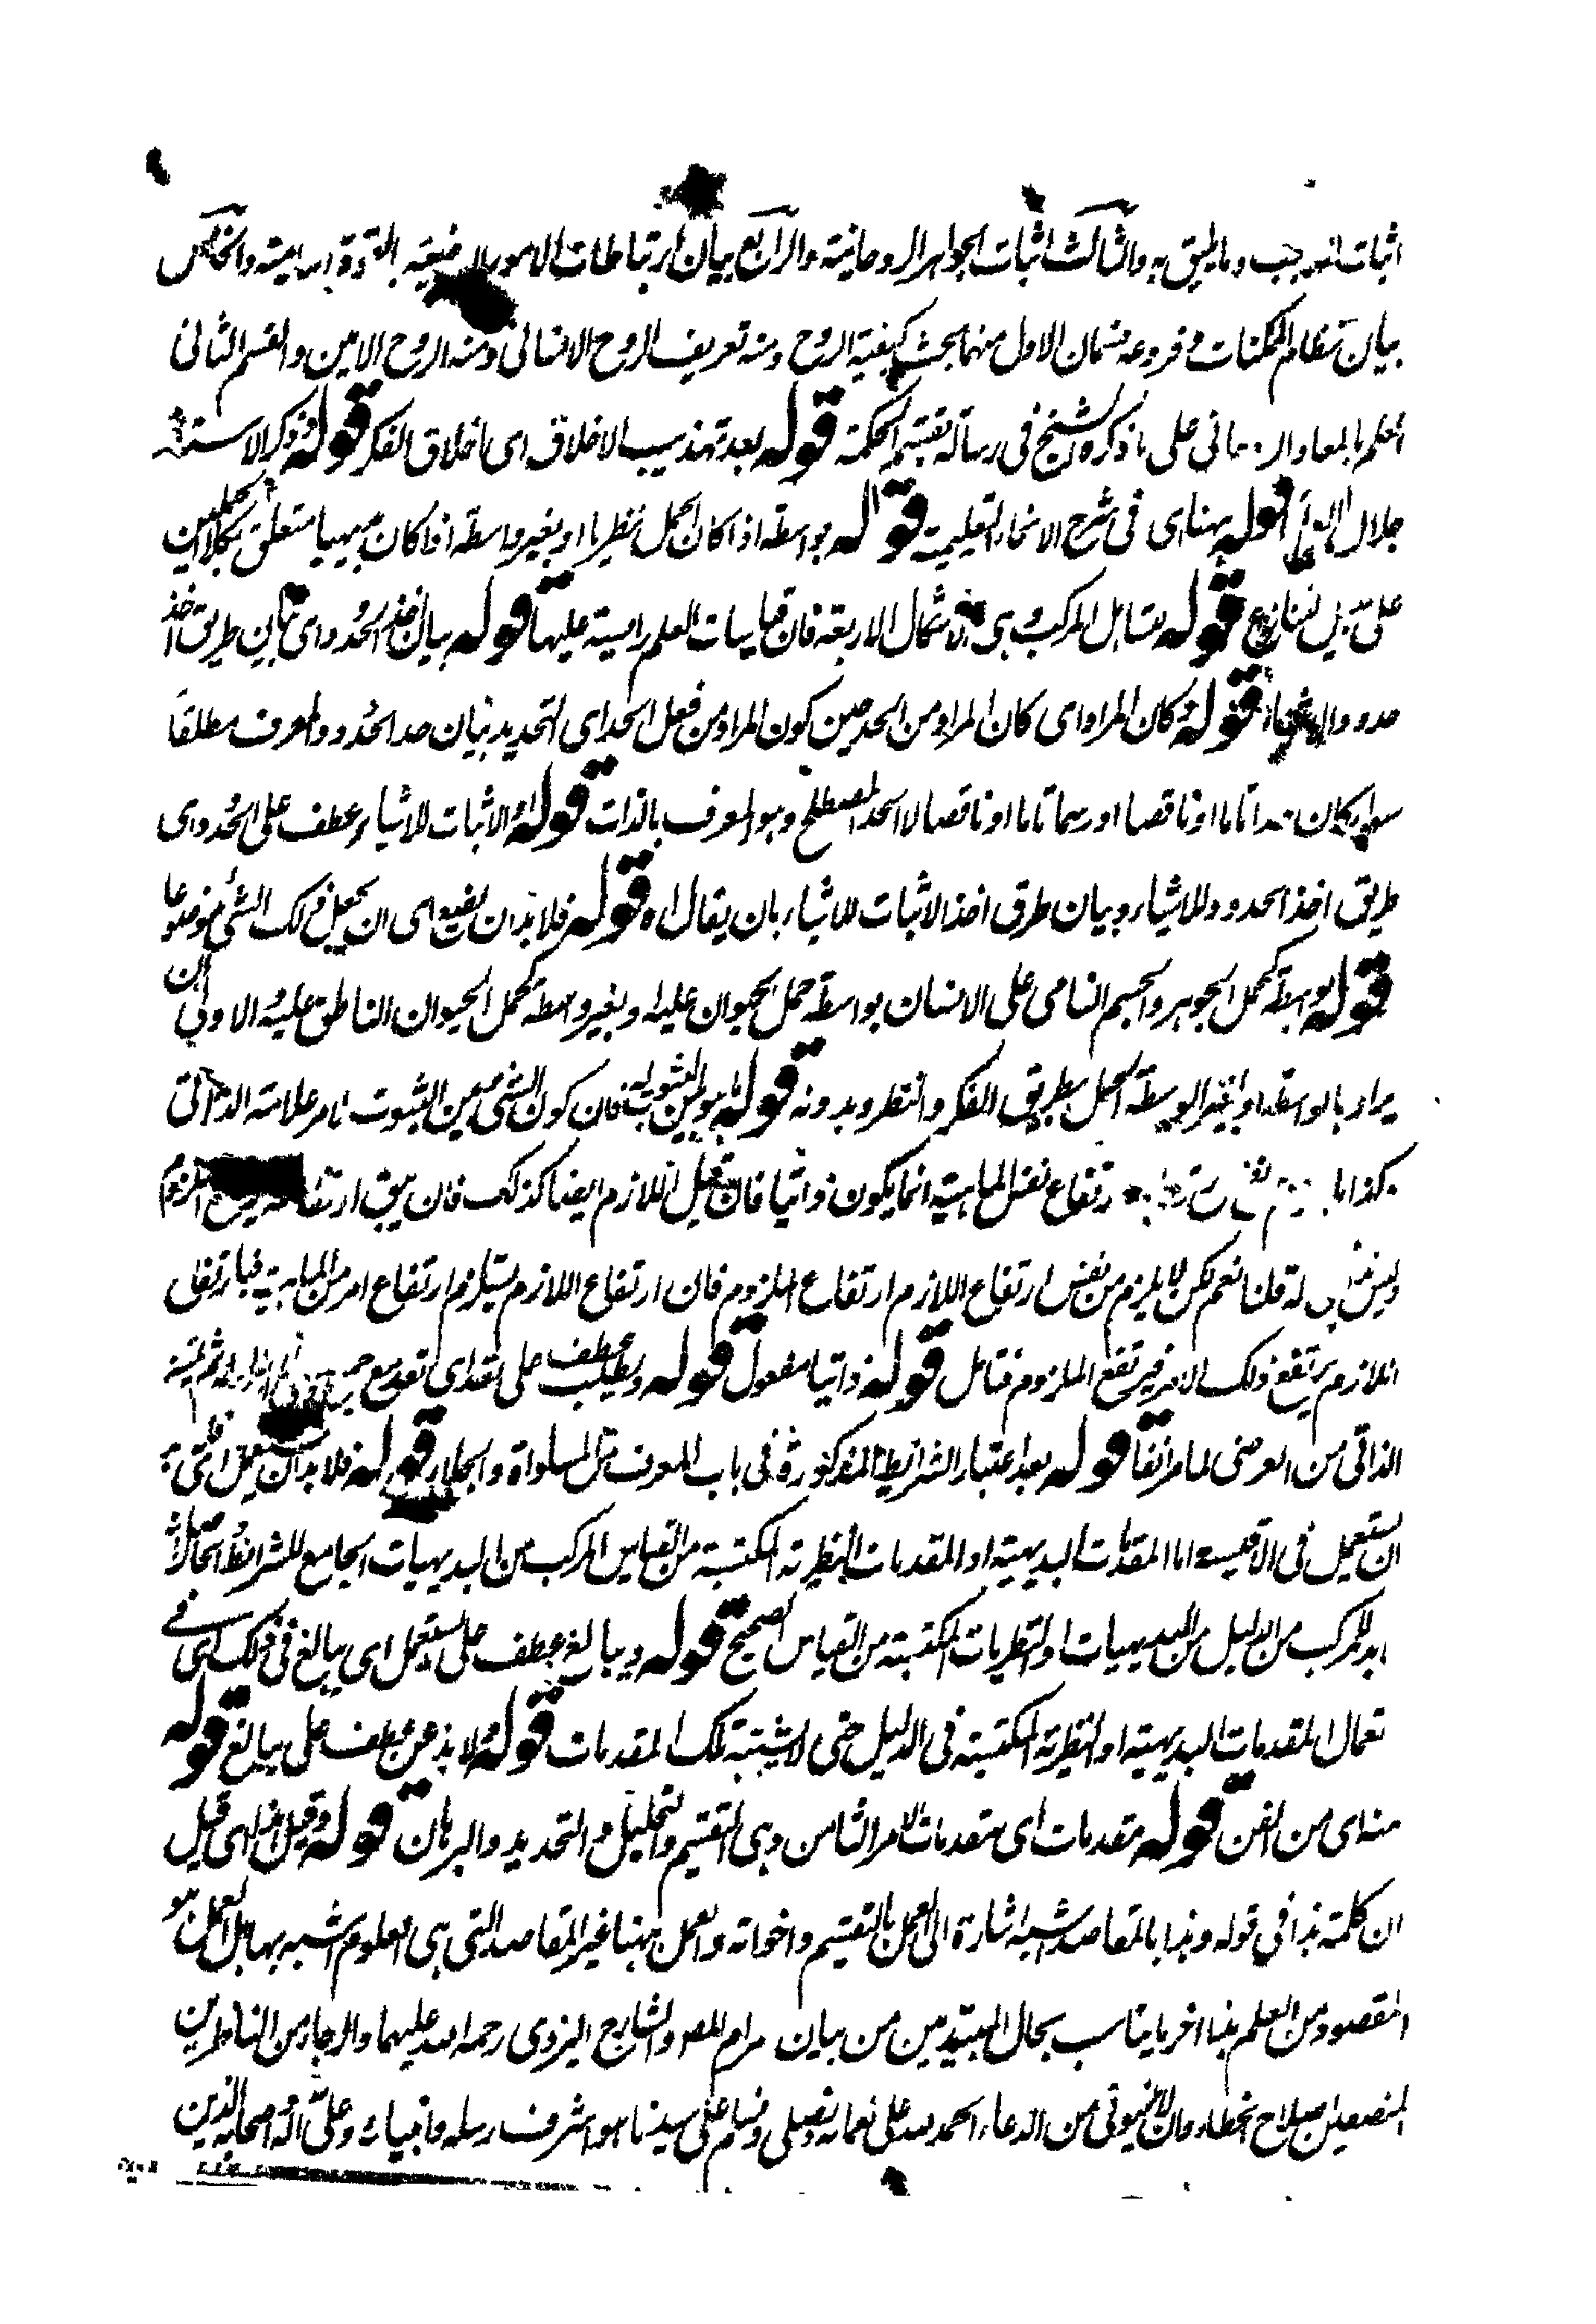 اثبات الواجب وما يليق به والثالث اثبات الجواهر الروحانية والرابع بيان ارتباطات الامور الارضية بالقوة السماوية والخامس
بيان نظام الممكنات وفروعه قسمان الاول منهما بحث كيفية الروح ومنه تعريف الروح الانسانى ومنه الروح الامين والقسم الثانى
العلم بالمعاد الروحانى على ما ذكره الشيخ فى رسالة تقسيم الحكمة قوله بعد تهذيب الاخلاق اى اخلاق الفكر قوله وذكر الاستاذ
جلال قوله ههنا اى فى شرح الانحاء التعليمية قوله بواسطة اذا كان الحمل نظريا او بغير واسطة اذا كان بديهيا متعلق بكلا الحملين
على سبيل التنازع قوله نتائل المركب وهى الاشكال الاربعة فان قياسات العلم راسية عليها قوله بيان اخذ الحدود اى بيان طريق اخذ
حدود الاشياء قوله كان المراد اى كان المراد من الحد حين كون المراد من فعل الحد اى التحديد بيان حد الحدود والمعرف مطلقا
سواء كان حدا تاما او ناقصا او رسما تاما او ناقصا لا الحد المصطلح وهو المعرف بالذات قوله او الاثبات للاشياء عطف على الحدود اى
طريق اخذ الحدود للاشياء وبيان طرق اخذ الاثبات للاشياء بان يقال اه قوله فلا بد ان يضع اى ان يجعل ذلك الشئ موضوعا
قوله بواسطة كحمل الجوهر والجسم النامى على الانسان بواسطة حمل الحيوان عليه او بغير واسطة كحمل الحيوان الناطق عليه الاولى ان
يراد بالواسطة او بغير الواسطة الحمل بطريق الفكر والنظر وبدونه قوله ما هو بين الثبوت له فان كون الشئ بين الثبوت لامر علامة الذاتى
كذا ما ارتفاع نفس الماهية انما يكون ذاتيا فان قيل اللازم ايضا كذلك فان بيق ارتفاعه يرتفع الملزوم
وليس له قلنا نعم لكن لا يلزم من نفس ارتفاع اللازم ارتفاع الملزوم فان ارتفاع اللازم يستلزم ارتفاع امر من الماهية فبارتفاع
اللازم يرتفع ذلك الامر فيرتفع الملزوم فتامل قوله ذاتيا مفعول قوله ويطلب عطف على تقدم اى تقدم جميع
الذاتى من العرضى لما مر انفا قوله بعد اعتبار الشرائط المذكورة فى باب المعرف مثل المساواة والجلاء قوله فلا بد ان يستعمل اى
ان يستعمل فى الاقيسة اما المقدمات البديهية او المقدمات النظرية المكتسبة من القياس المركب من البديهيات الجامع للشرائط
المركب من الدليل من البديهيات او النظريات المكتسبة من القياس الصحيح قوله ويبالغ عطف على يستعمل اى يبالغ فى ذلك اى فى
تعمال المقدمات البديهية او النظرية المكتسبة فى الدليل حتى لا يشتبه تلك المقدمات قوله ولا يذعن عطف على يبالغ قوله
منه اى من الفن قوله مقدمات اى مقدمات الامر الثامن وهى التقسيم والتحليل والتحديد والبرهان قوله وقيل اه اى قيل
ان كلمة هذا فى قوله وهذا بالمقاصد اشبه اشارة الى العمل بالتقسيم واخواته والعمل ههنا غير المقاصد التى هى العلوم اشبه بها بل العمل هو
المقصود من العلم هذا اخر ما يناسب بحال المبتدئين من بيان مرام المص والشارح اليزدى رحمة الله عليهما والرجاء من الناظرين
المنصفين اصلاح الخطاء وان لا ينسونى من الدعاء الحمد لله على نعمائه ونصلى ونسلم على سيدنا هو اشرف رسله وانبيائه وعلى اله واصحابه الذين